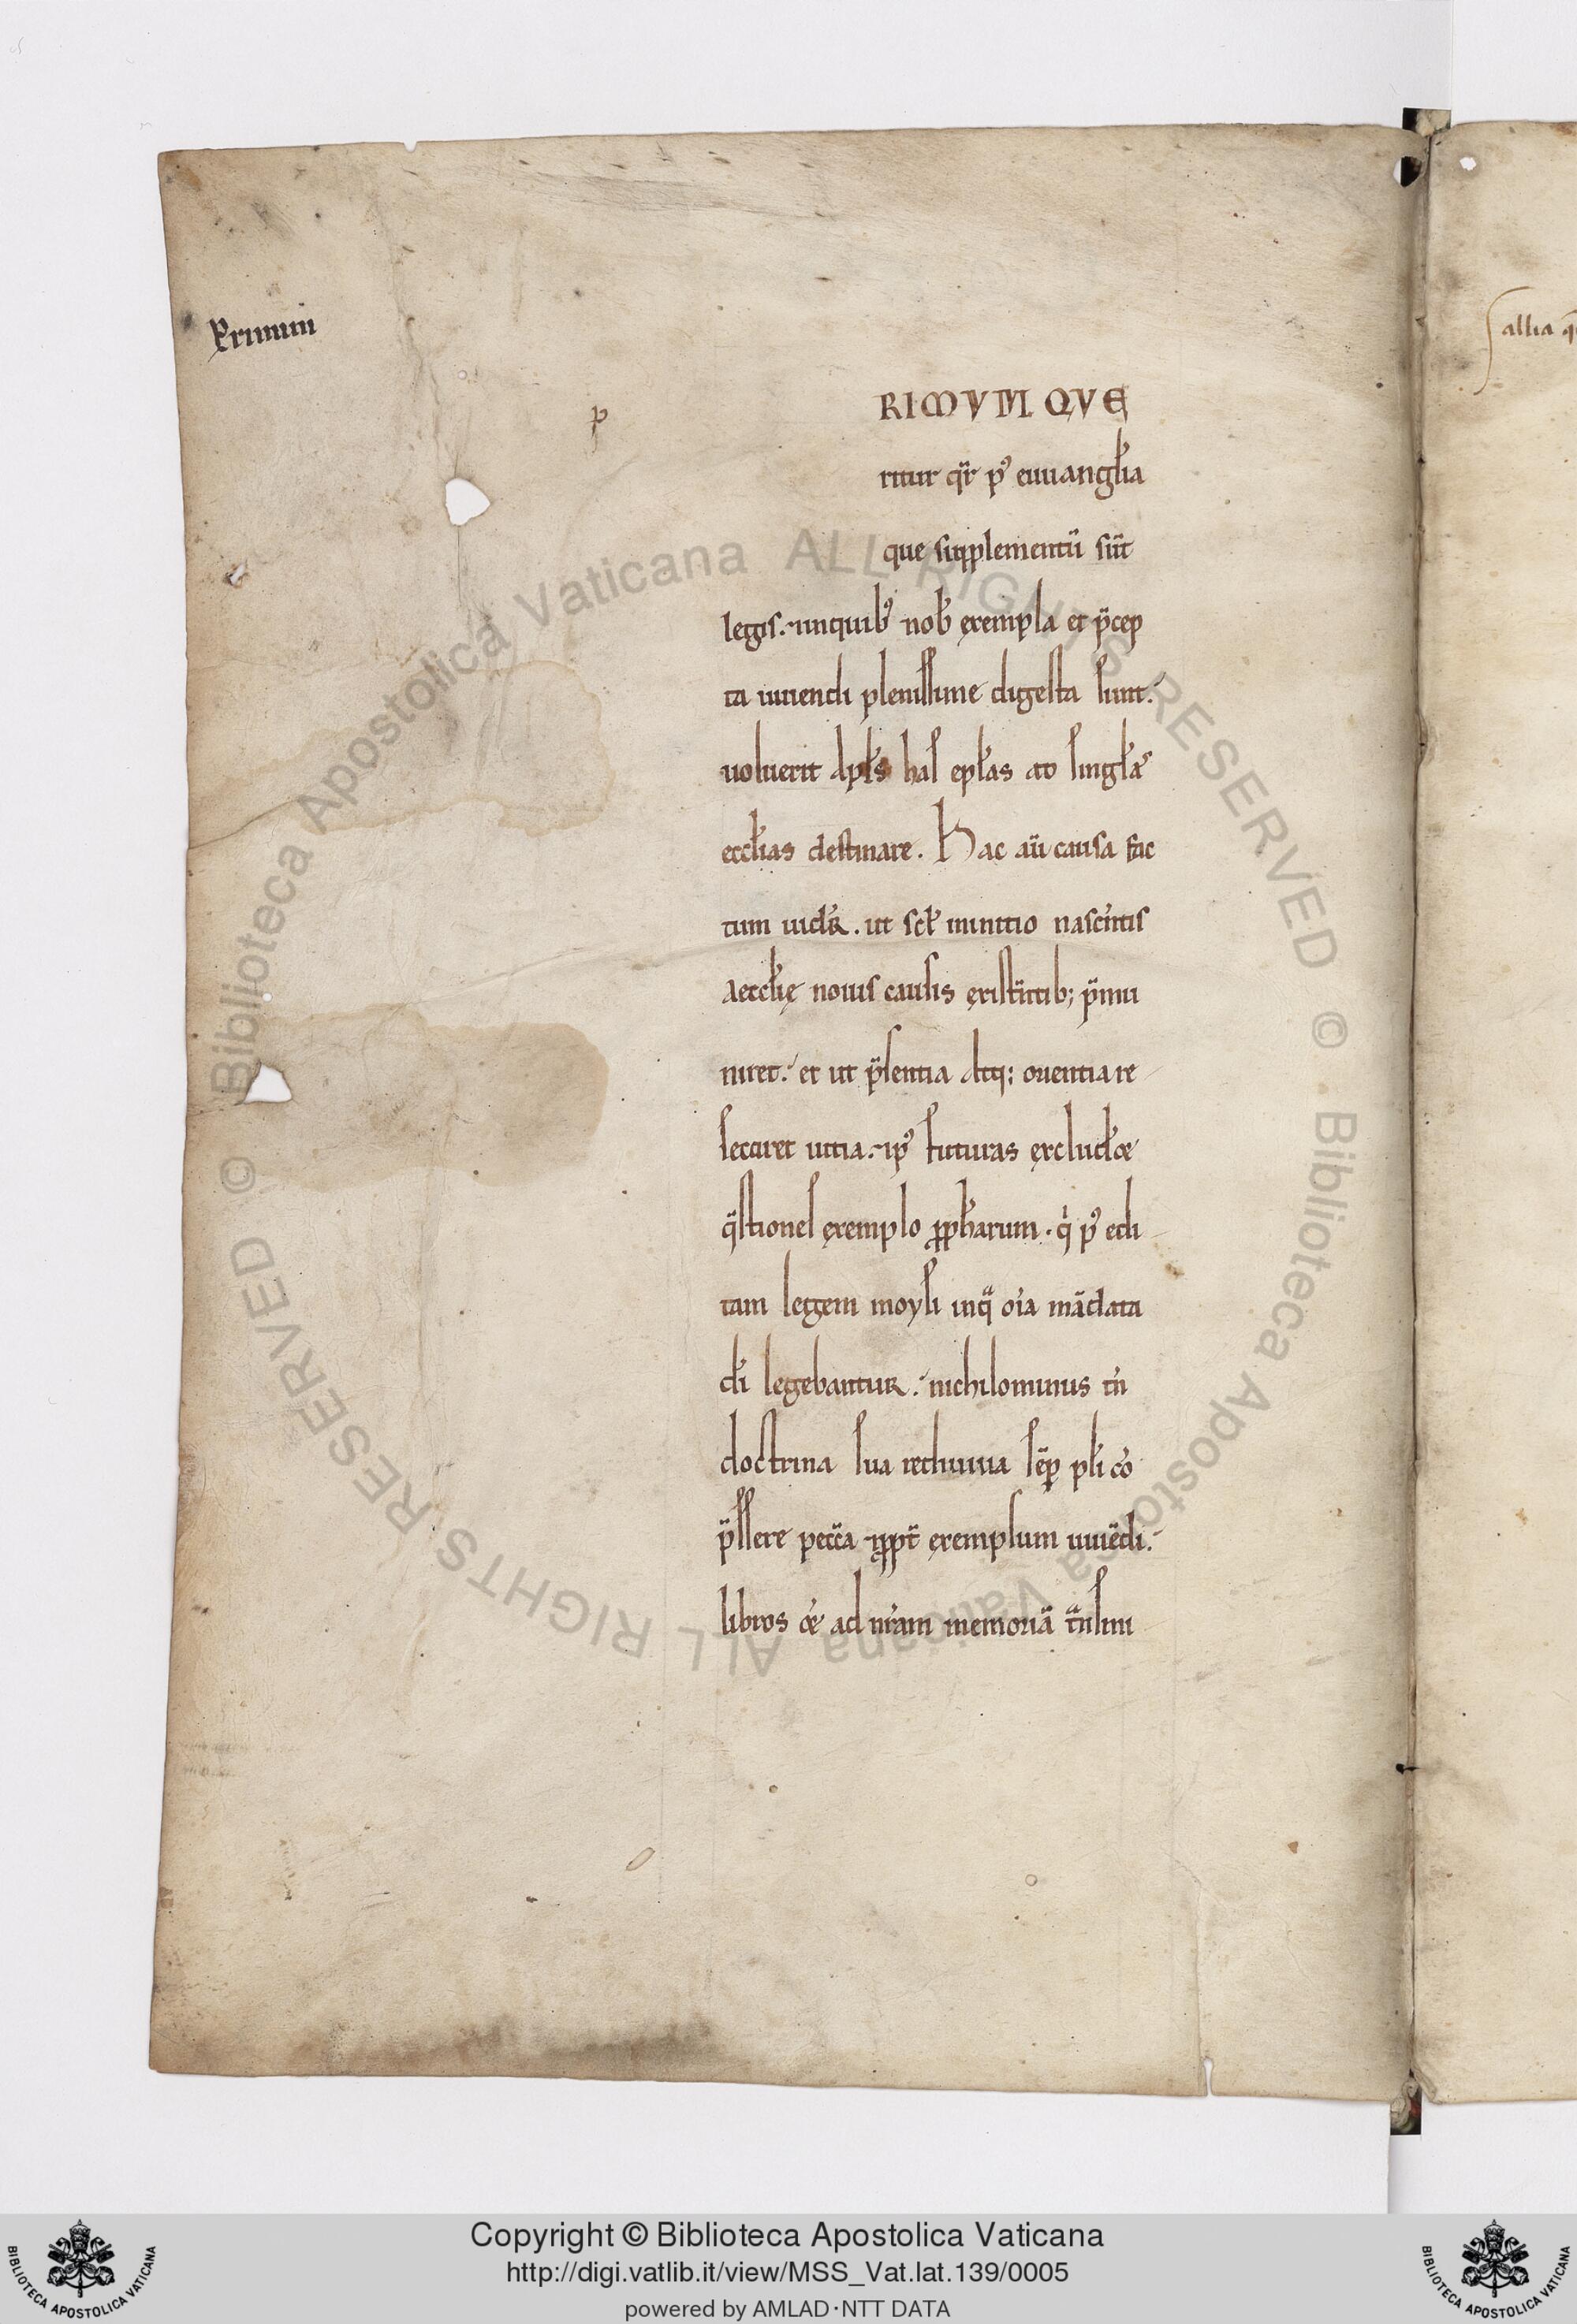 Primum
p
RIMVM QVE
ritur qr̄ p' euuanglia
que supplementū sūt
legis. inquib' nob̄ exempla et p̄cep
ta uiuendi plenissime digesta sunt.
uoluerit apl̄s has epl̄as ad singl̄as
eccl̄ias destinare. Hac aū causa fac
tum uidēR. ut scl̄ inınitio nascētis
aeccl̄ię nouis causis existētib; p̄mu
niret. et ut p̄sentia atq; orientia re
secaret uitia. et p' futuras excludēt
q̄stiones exemplo pph̄arum. q̇ p' edi
tam legem moysi inq̄ oīa mādata
dī legebantuR. nichilominus tn̄
doctrina sua rediuiua sēp pl̄i cō
p̄ssere pecc̄a ppt̄ exemplum uiuēdi.
libros ad nr̄am memoriā t̄nsmi
Sallia
© Biblioteca Apostolica Vaticana ALL RIGHTS RESERVED
© Biblioteca Apostolica Vaticana ALL RIGHTS RESERVED
Copyright © Biblioteca Apostolica Vaticana
http://digi.vatlib.it/view/MSS_Vat.lat.139/0005
powered by AMLAD·NTT DATA
BIBLIOTECA APOSTOLICA VATICANA
BIBLIOTECA APOSTOLICA VATICANA